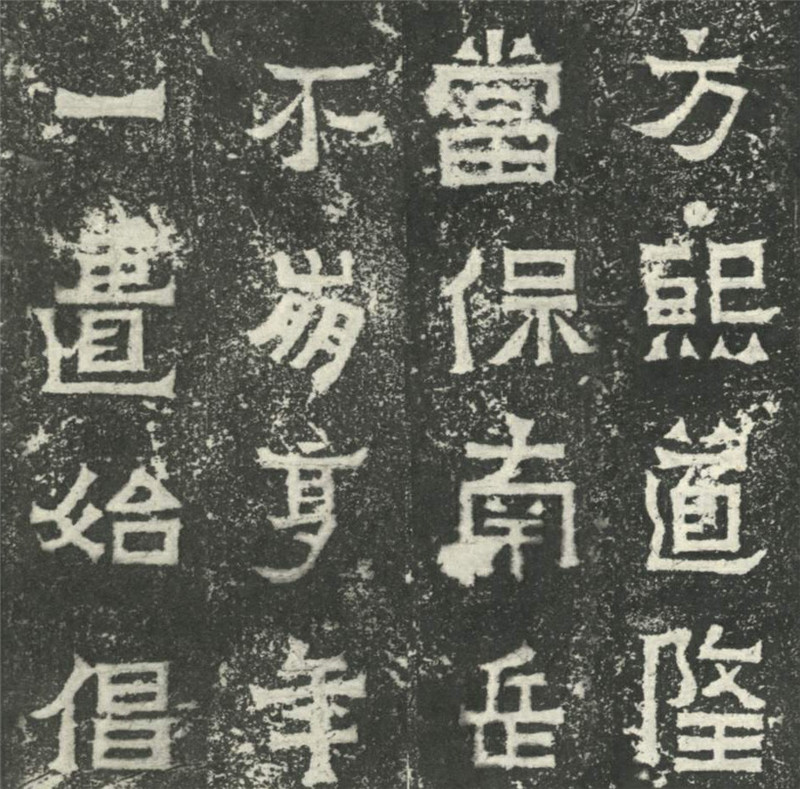 方熙道隆
當保南岳
不崩享年
一匱始倡